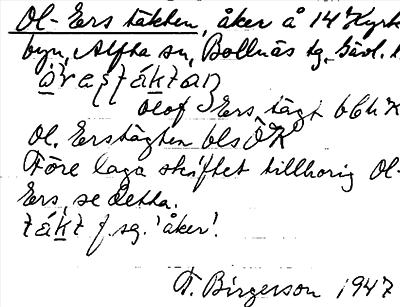 Ol-Ers täkten, åker å 14 Kyrk
byn, Alfta sn, Bollnäs tg, Gävl. l
Olof Ers tägt bbl K
Ol. Erstägten bls ÖK
Före laga skiftet tillhörig Ol-
Ers, se detta.
f. sg. 'åker'.
T. Birgerson 1947